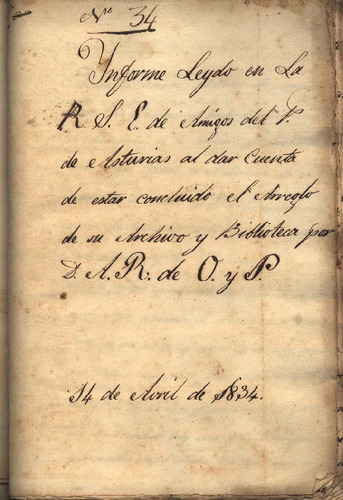 Nº 34
Informe Leydo en La
R. S. E. de Amigos del P.
de Asturias al dar cuenta
de estar concluido el Arreglo
de su Archivo y Biblioteca por
D. A. R. de O. y P.
14 de Abril de 1834.